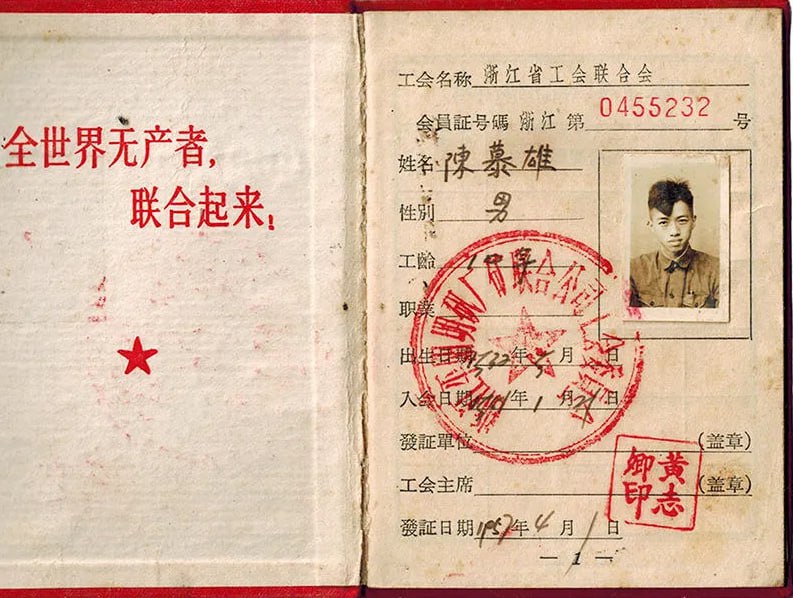 全世界无产者,
联合起来!
工会名称 浙江省工会联合会
会員証号碼 浙江 第 0455232 号
姓名 陳慕雄
性別 男
工齡
职業
出生日期 年 月 日
入会日期 年 1 月 21 日
發証單位 (盖章)
工会主席 (盖章)
黃志
卿印
發証日期 1957 年 4 月 1 日
— 1 —